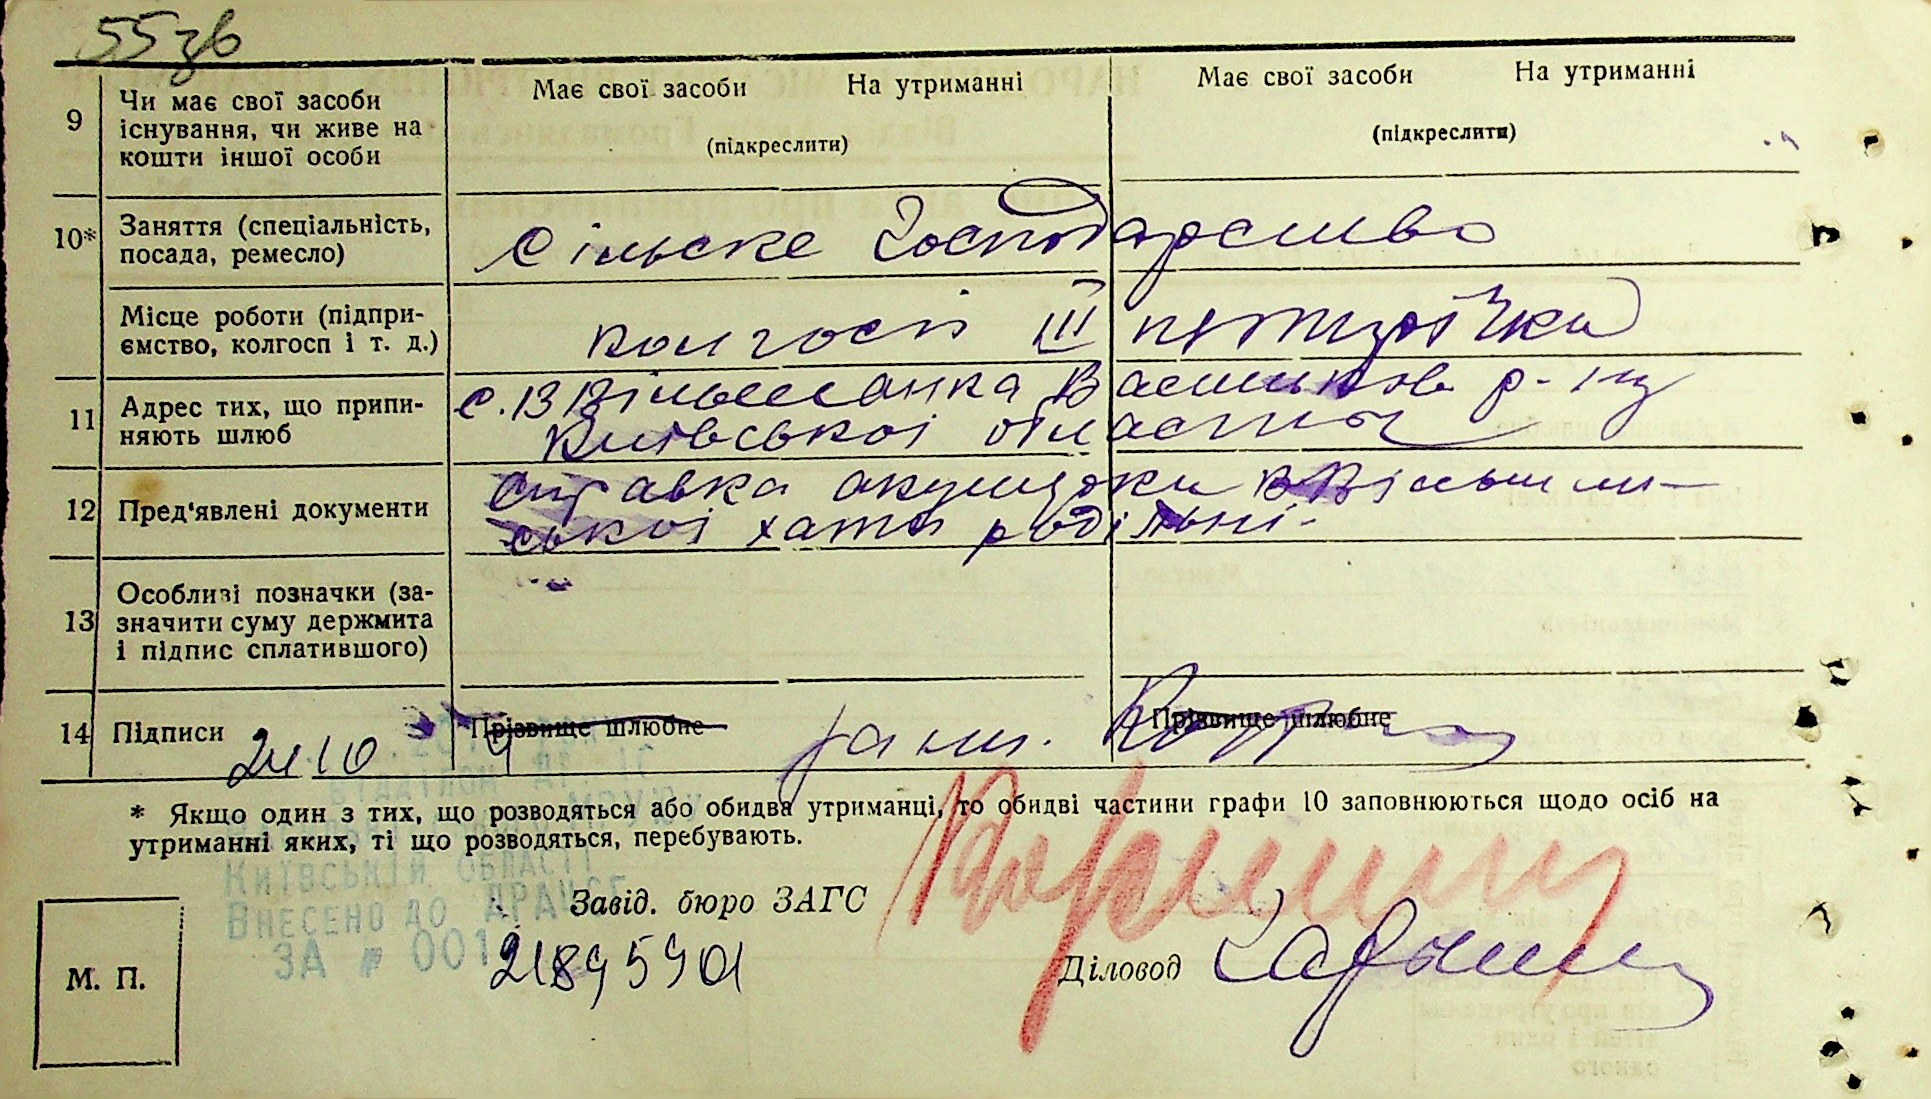 55зв
Має свої засоби На утриманні Має свої засоби На утриманні
9 Чи має свої засоби
існування, чи живе на
кошти іншої особи
(підкреслити) (підкреслити)
10* Заняття (спеціальність,
посада, ремесло)
сільске господарство
Місце роботи (підпри-
ємство, колгосп і т. д.)
колгосп ІІІ
11 Адрес тих, що припи-
няють шлюб
с. В Вільшанка Васильков р-ну
Київської області
12 Пред'явлені документи
справка акушерки В Вільшан-
ської хати родільні.
13 Особливі позначки (за-
значити суму держмита
і підпис сплатившого)
14 Підписи
Прізвище шлюбне Прізвище шлюбне
* Якщо один з тих, що розводяться або обидва утриманці, то обидві частини графи 10 заповнюються щодо осіб на
утриманні яких, ті що розводяться, перебувають.
Київській області
Внесено до ДРАЦСГ
за № 001
21895901
Завід. бюро ЗАГС
Діловод
М. П.